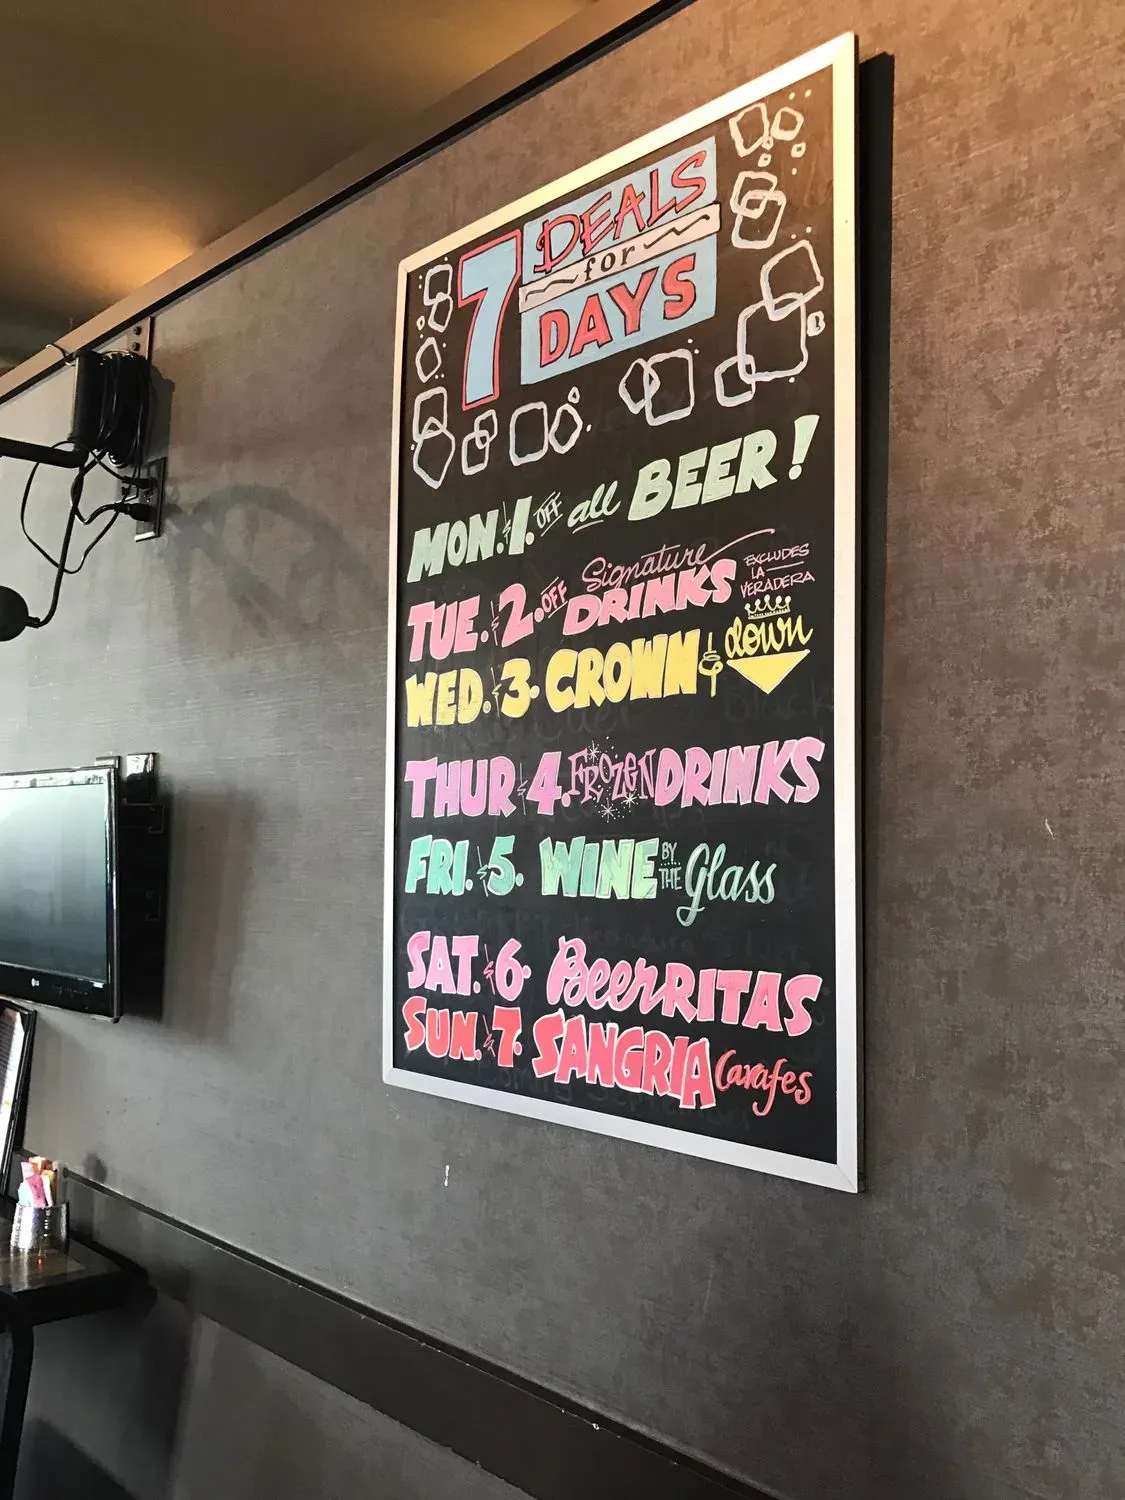 7 DEALS
for
DAYS
MON. $1. OFF all BEER!
TUE. $2. OFF Signature DRINKS EXCLUDES LA VERADERA
WED. $3. CROWN & down
THUR $4. FROZEN DRINKS
FRI. $5. WINE BY THE Glass
SAT. $6. BeerRITAS
SUN. $7. SANGRIA Carafes
LG